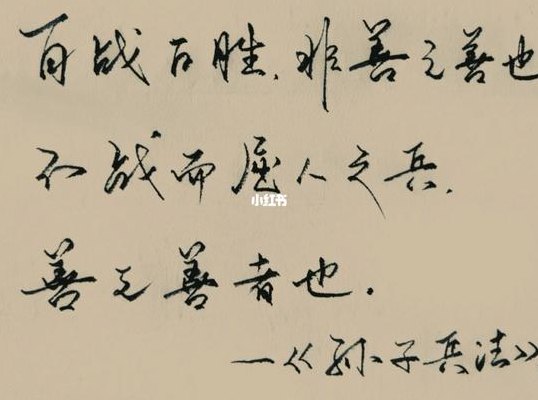 百战百胜，非善之善也
不战而屈人之兵，
小红书
善之善者也。
—《孙子兵法》